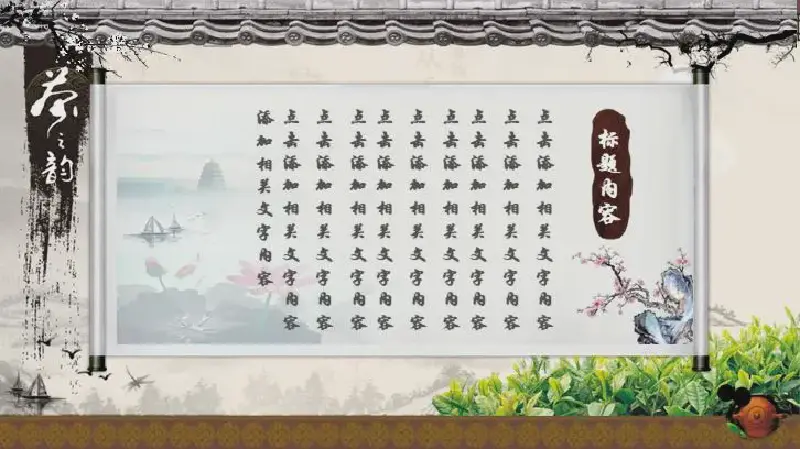 标题内容
点击添加相关文字内容
点击添加相关文字内容
点击添加相关文字内容
点击添加相关文字内容
点击添加相关文字内容
点击添加相关文字内容
点击添加相关文字内容
点击添加相关文字内容
点击添加相关文字内容
添加相关文字内容
茶之韵